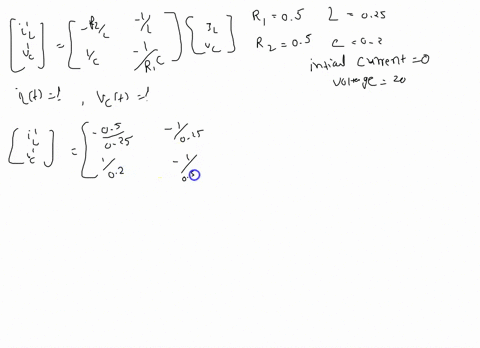 [i'L v'C] = [-R2/L -1/L 1/C -1/R1C] [IL vC] R1 = 0.5 L = 0.25
R2 = 0.5 C = 0.2
initial current = 0
voltage = 20
iL(t) = ! , vC(t) = !
[i'L v'C] = [-0.5/0.25 -1/0.25 1/0.2 -1/0.5